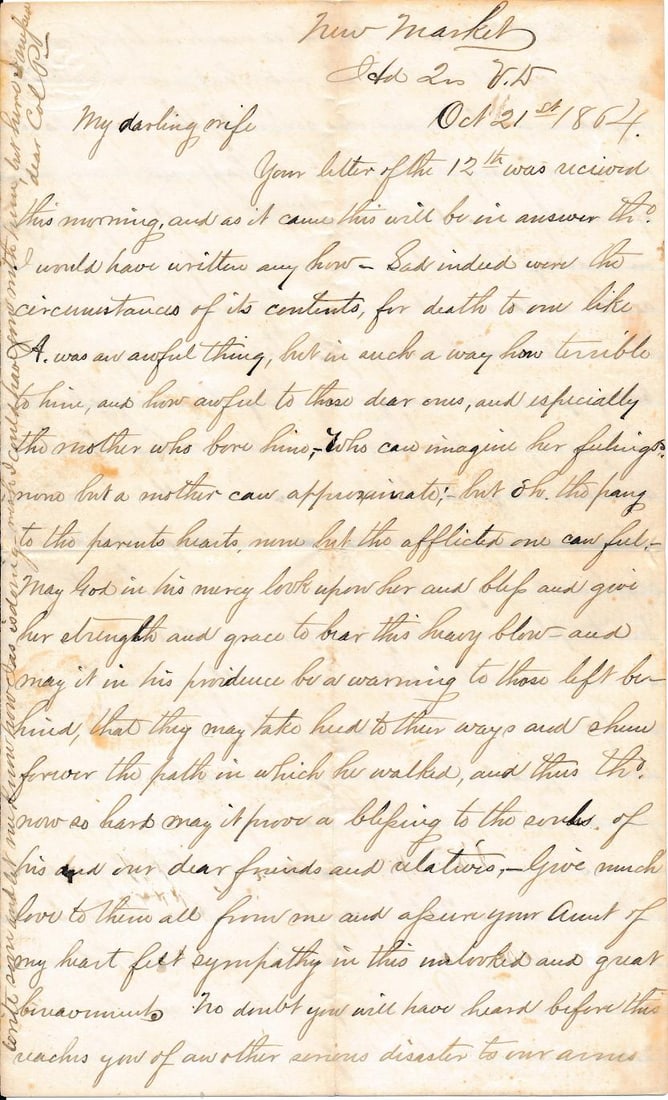 New Market
Hd Qrs V.D
Oct 21st 1864.
My darling wife
Your letter of the 12th was recieved
this morning, and as it came this will be in answer tho.
I would have written any how - Sad indeed were the
circumstances of its contents, for death to one like
A. was an awful thing, but in such a way how terrible
to him, and how awful to those dear ones, and especially
the mother who bore him, - Who can imagine her feelings.
none but a mother can approximate; - but oh, the pang
to the parents hearts, none but the afflicted one can feel, -
May God in his mercy look upon her and bless and give
her strength and grace to bear this heavy blow - and
may it in his providence be a warning to those left be-
hind, that they may take heed to their ways and shun
forever the path in which he walked, and thus tho.
now so hard may it prove a blessing to the souls of
his and our dear friends and relatives, - Give much
love to them all from me and assure your Aunt of
my heart felt sympathy in this unlooked and great
bereavement. No doubt you will have heard before this
reaches you of another serious disaster to our arms
Write soon and let me know how is doing. wish I could have gone with him, but hurra
dear Col. P